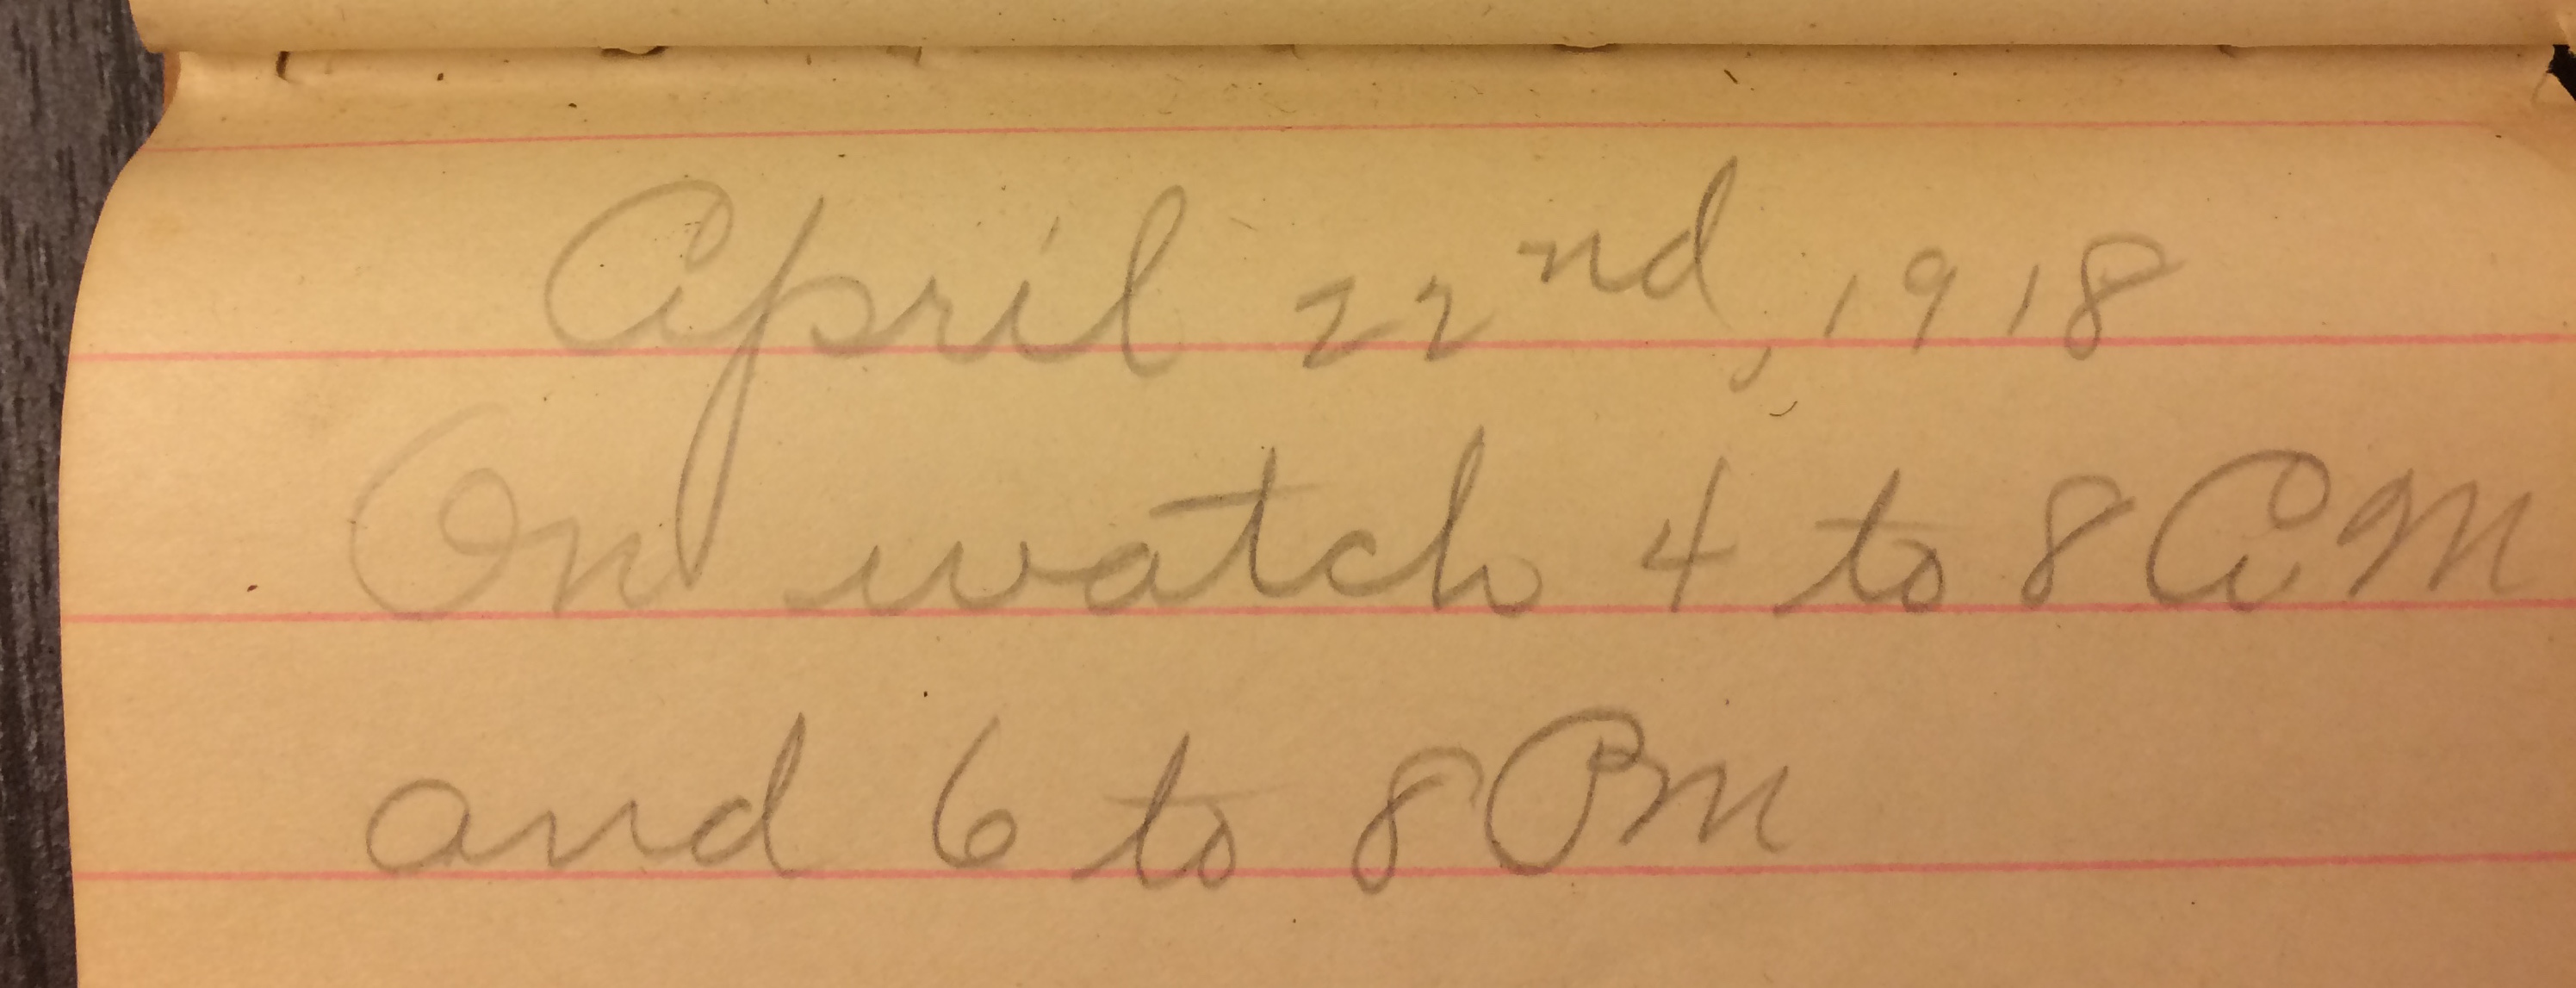 April 22nd, 1918
On watch 4 to 8 AM
and 6 to 8 PM